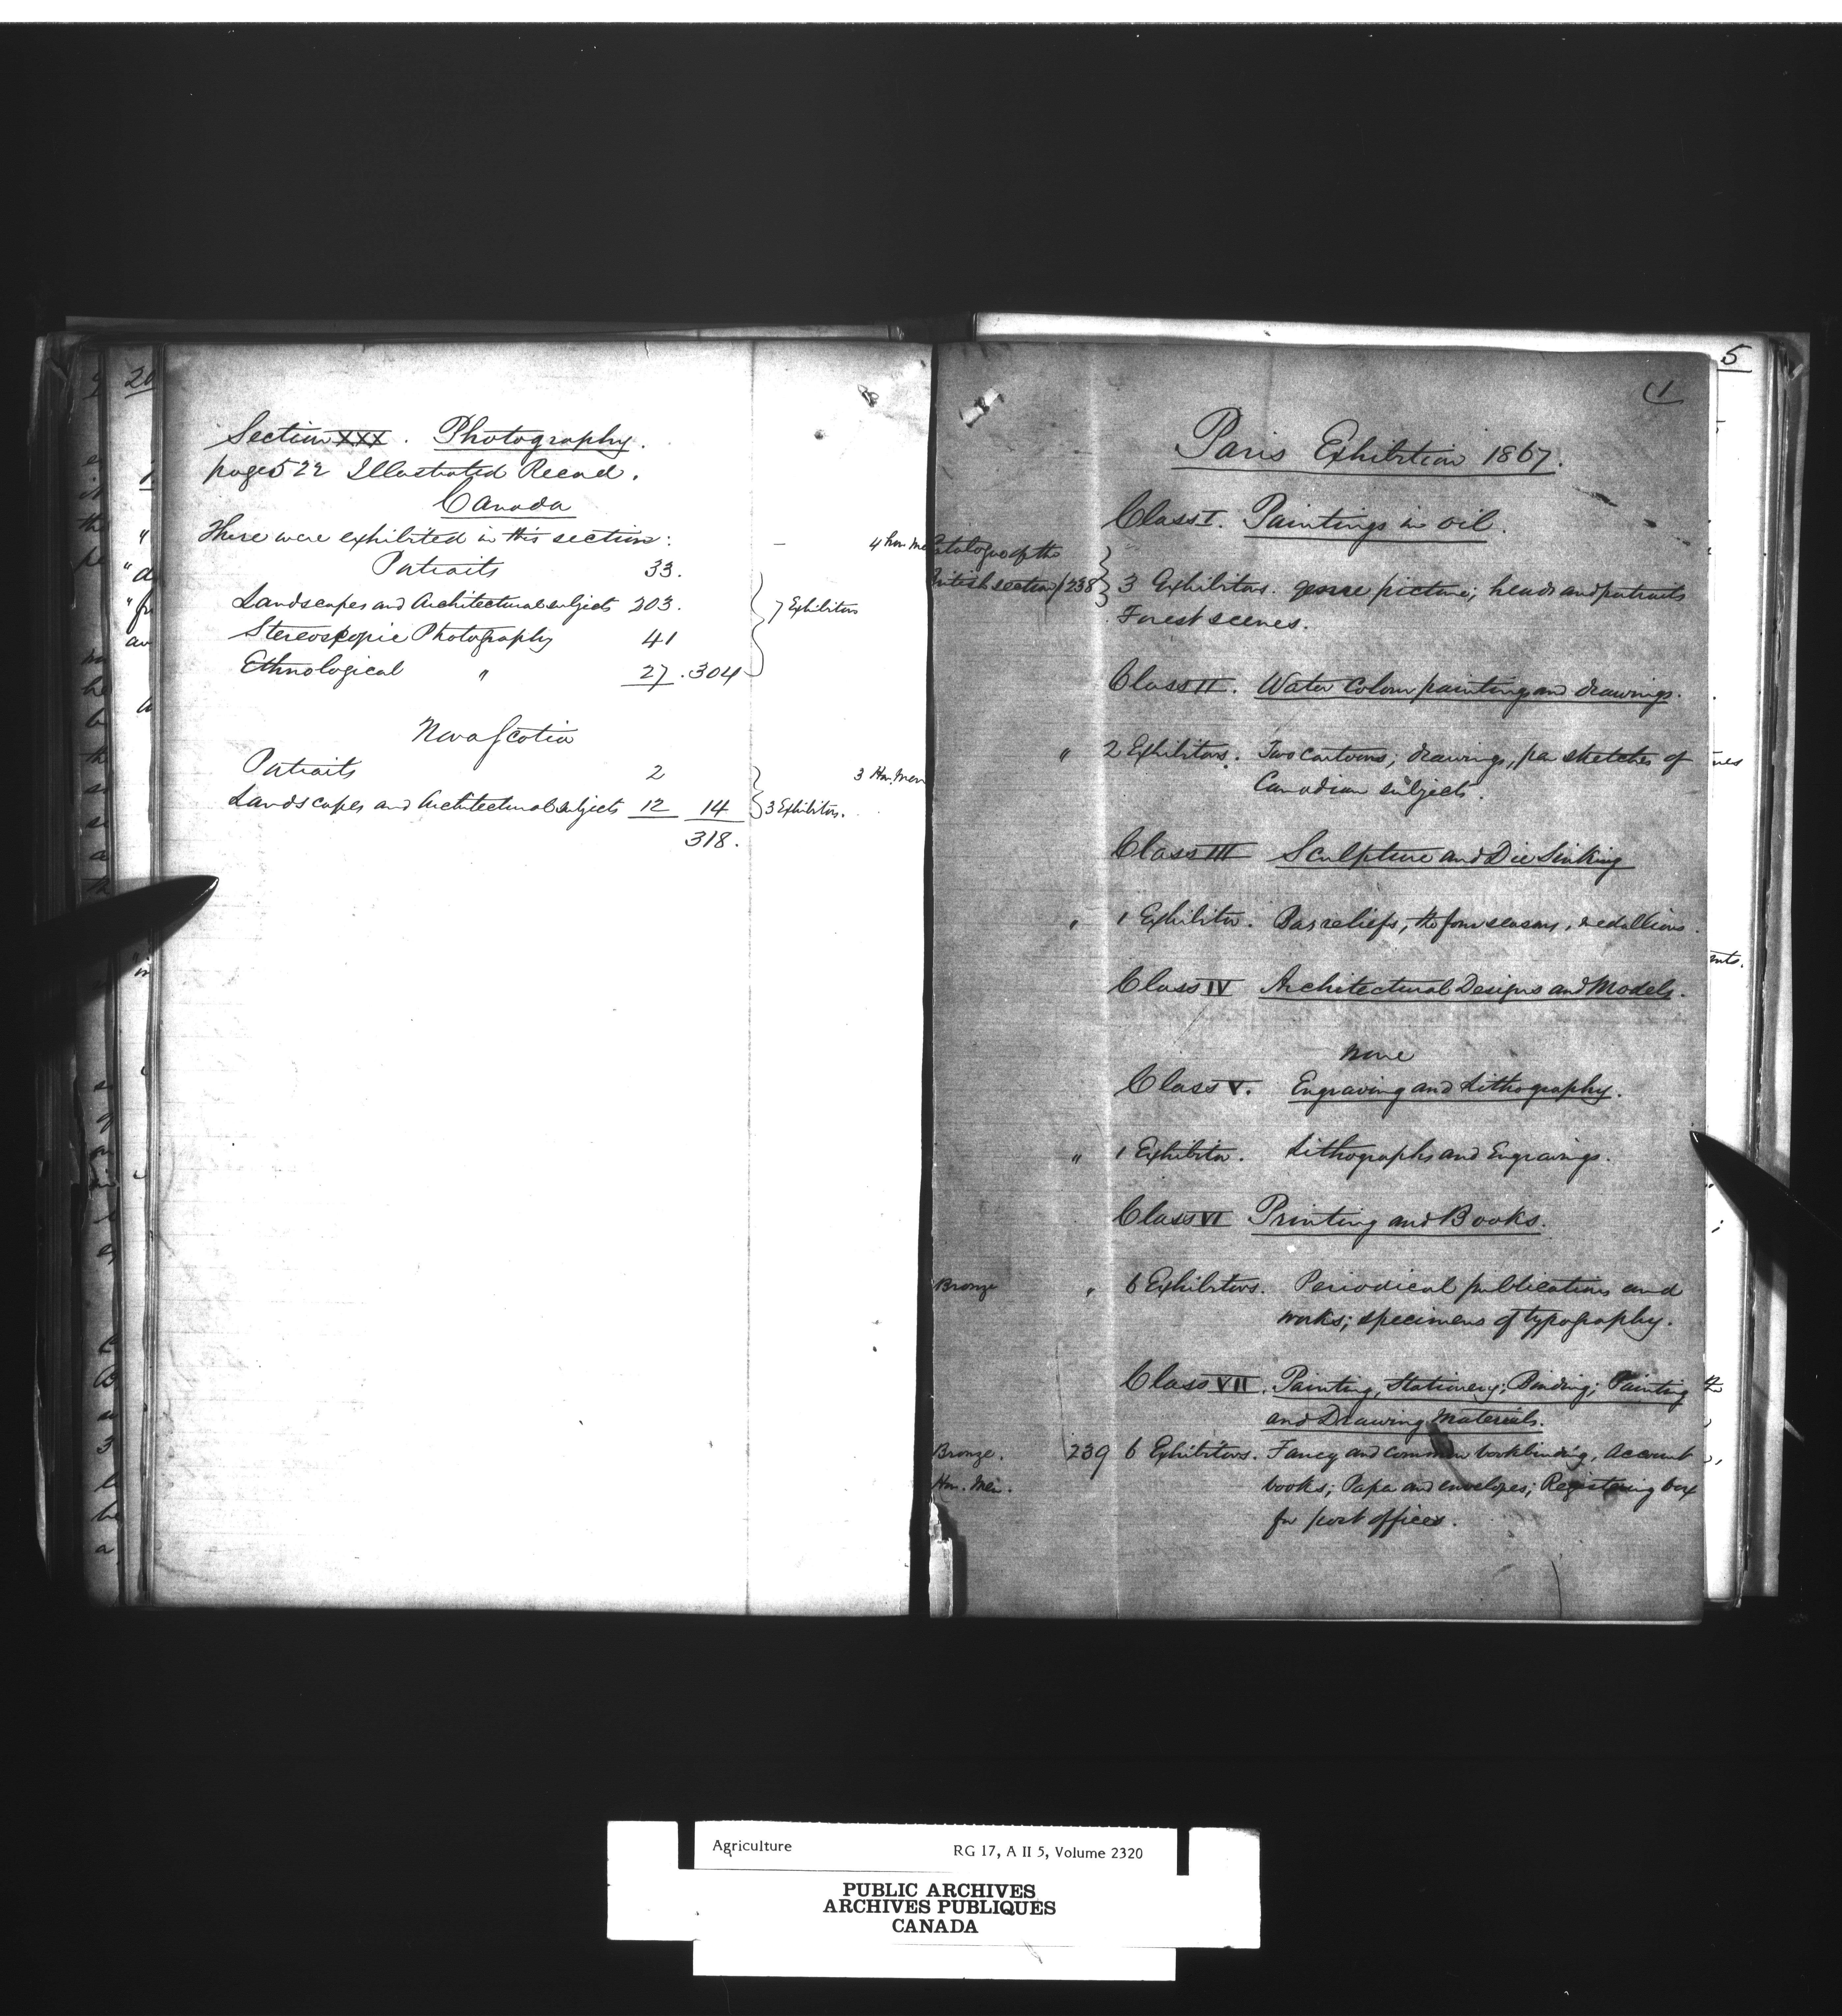 Section XXX. Photography.
page 522 Illustrated Record.
Canada
There were exhibited in this section:
Portraits 33.
Landscapes and Architectural subjects 203.
Stereoscopic Photography 41
Ethnological " 27. 304
7 Exhibitors
4 hon. Me
Nova Scotia
Portraits 2
Landscapes and Architectural subjects 12 14
318.
3 Exhibitors.
3 Hon. Men
5
1
Paris Exhibition 1867.
Class I. Paintings in oil.
Catalogue of the
British section / 238 3 Exhibitors. genre picture; heads and portraits
Forest scenes.
Class II. Water Colour paintings and drawings.
" 2 Exhibitors. Two Cartoons; drawings, pen sketches of
Canadian subjects.
Class III Sculpture and Die Sinking
" 1 Exhibitor. Bas reliefs, the four seasons, medallions.
Class IV Architectural Designs and Models.
none
Class V. Engraving and Lithography.
" 1 Exhibitor. Lithographs and Engravings.
Class VI Printing and Books.
Bronze " 6 Exhibitors. Periodical publications and
works; specimens of typography.
Class VII. Painting, Stationery; Binding; Painting
and Drawing Materials.
Bronze. 239 6 Exhibitors. Fancy and common bookbinding, account
Hon. Men. books; Paper and envelopes; Registering box
for post offices.
Agriculture RG 17, A II 5, Volume 2320
PUBLIC ARCHIVES
ARCHIVES PUBLIQUES
CANADA